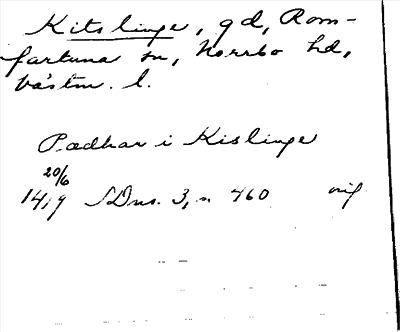 Kitslinge, gd, Rom-
fartuna sn, Norrbo hd,
Västm. l.
Pædhar i Kislinge
20/6
1419 SDns. 3, n. 460 orig